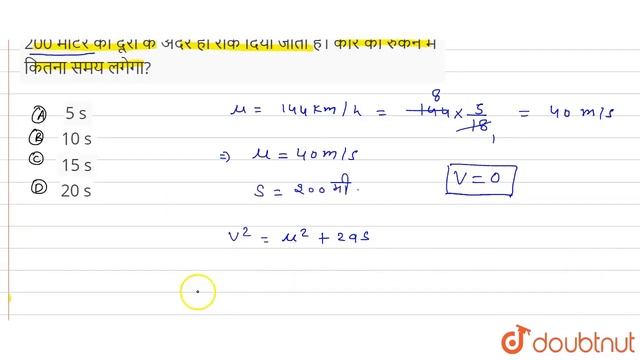 200 मीटर की दूरी के अंदर ही रोक दिया जाता है। कार को रुकने में
कितना समय लगेगा?
A 5 s
B 10 s
C 15 s
D 20 s
u = 144 km/h = 8 144 × 5/18 1 = 40 m/s
⇒ u = 40 m/s
S = 200 मी.
V = 0
V² = u² + 2as
doubtnut